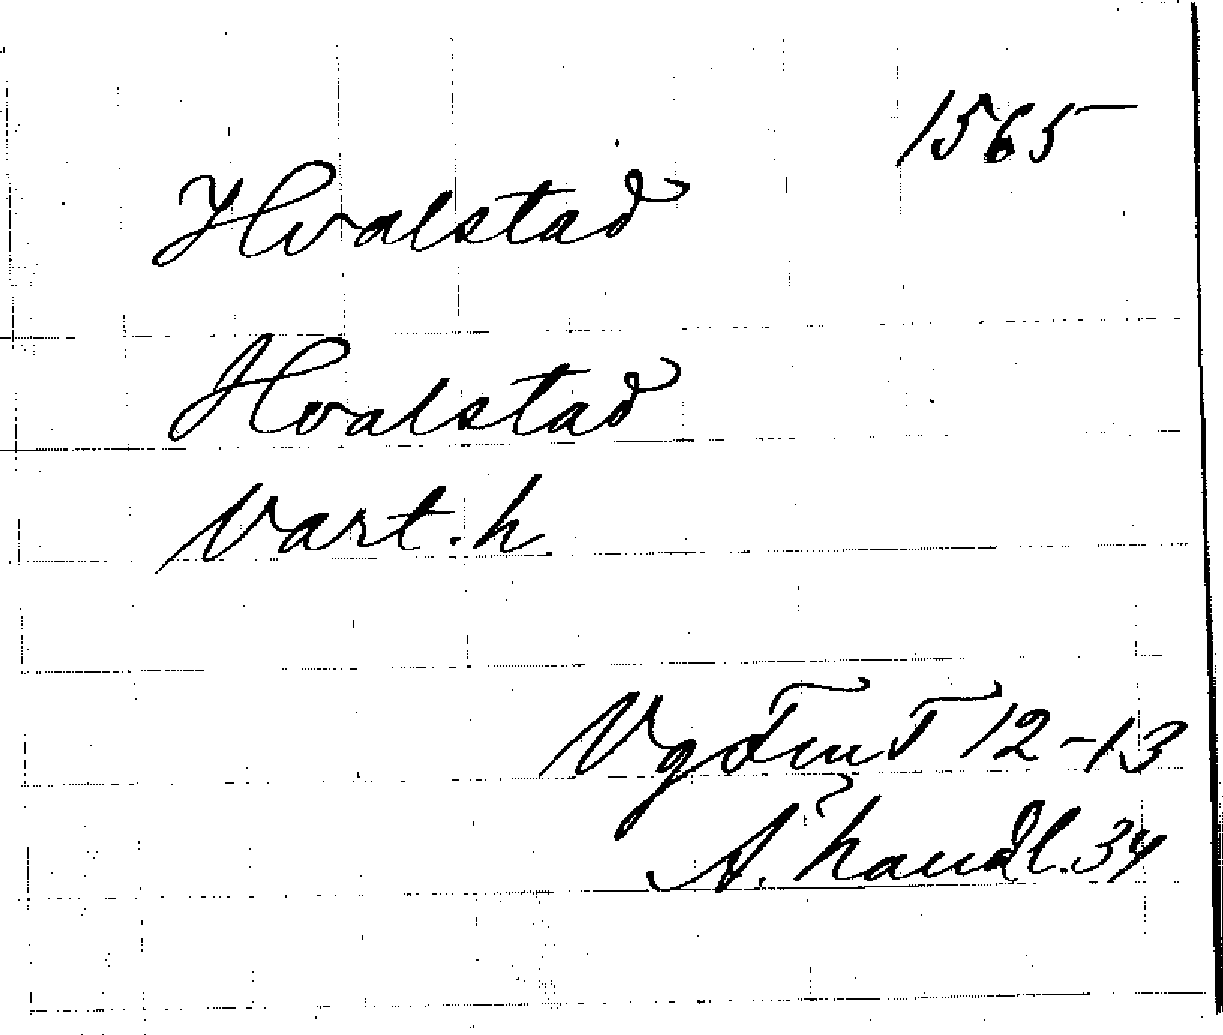 1565
Hvalstad
Hvalstad
Vart. h
Vg 12-13
Ä. handl. 34